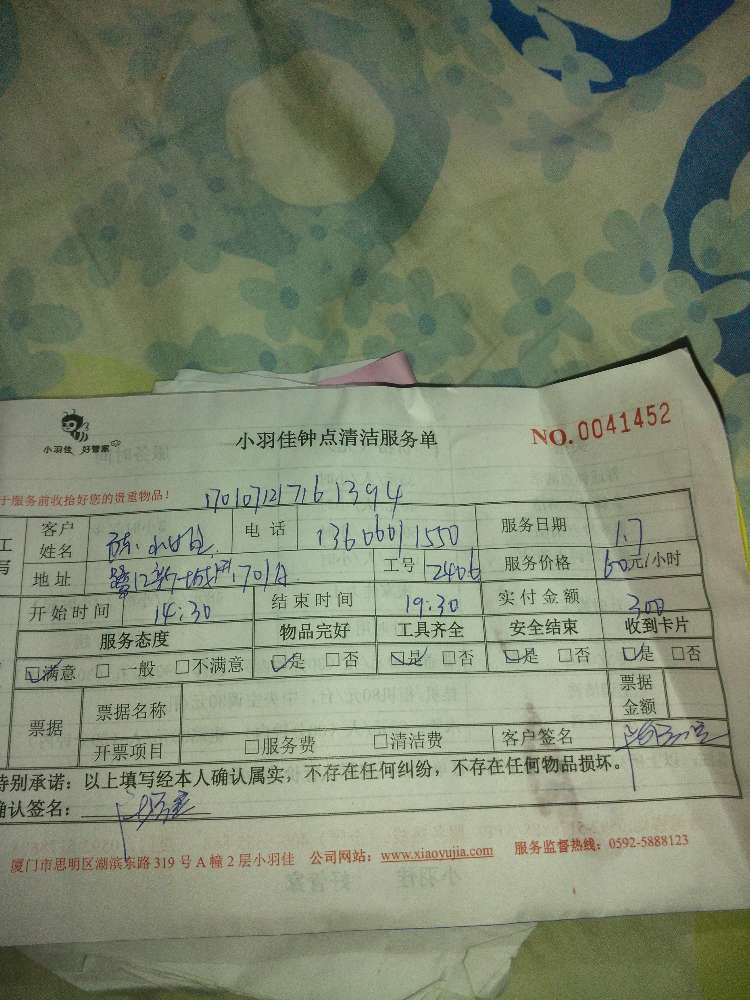 小羽佳 好管家
小羽佳钟点清洁服务单
NO.0041452
于服务前收拾好您的贵重物品!
1701071217161394
工 客户姓名 电话 13606011550 服务日期 1.7
写 地址 701A 工号 2406 服务价格 60元/小时
开始时间 14:30 结束时间 19:30 实付金额 300
服务态度 物品完好 工具齐全 安全结束 收到卡片
☑满意 □一般 □不满意 ☑是 □否 ☑是 □否 ☑是 □否 ☑是 □否
票据 票据名称 票据金额
开票项目 □服务费 □清洁费 客户签名
特别承诺:以上填写经本人确认属实,不存在任何纠纷,不存在任何物品损坏。
确认签名:
厦门市思明区湖滨东路319号A幢2层小羽佳 公司网站:www.xiaoyujia.com 服务监督热线:0592-5888123